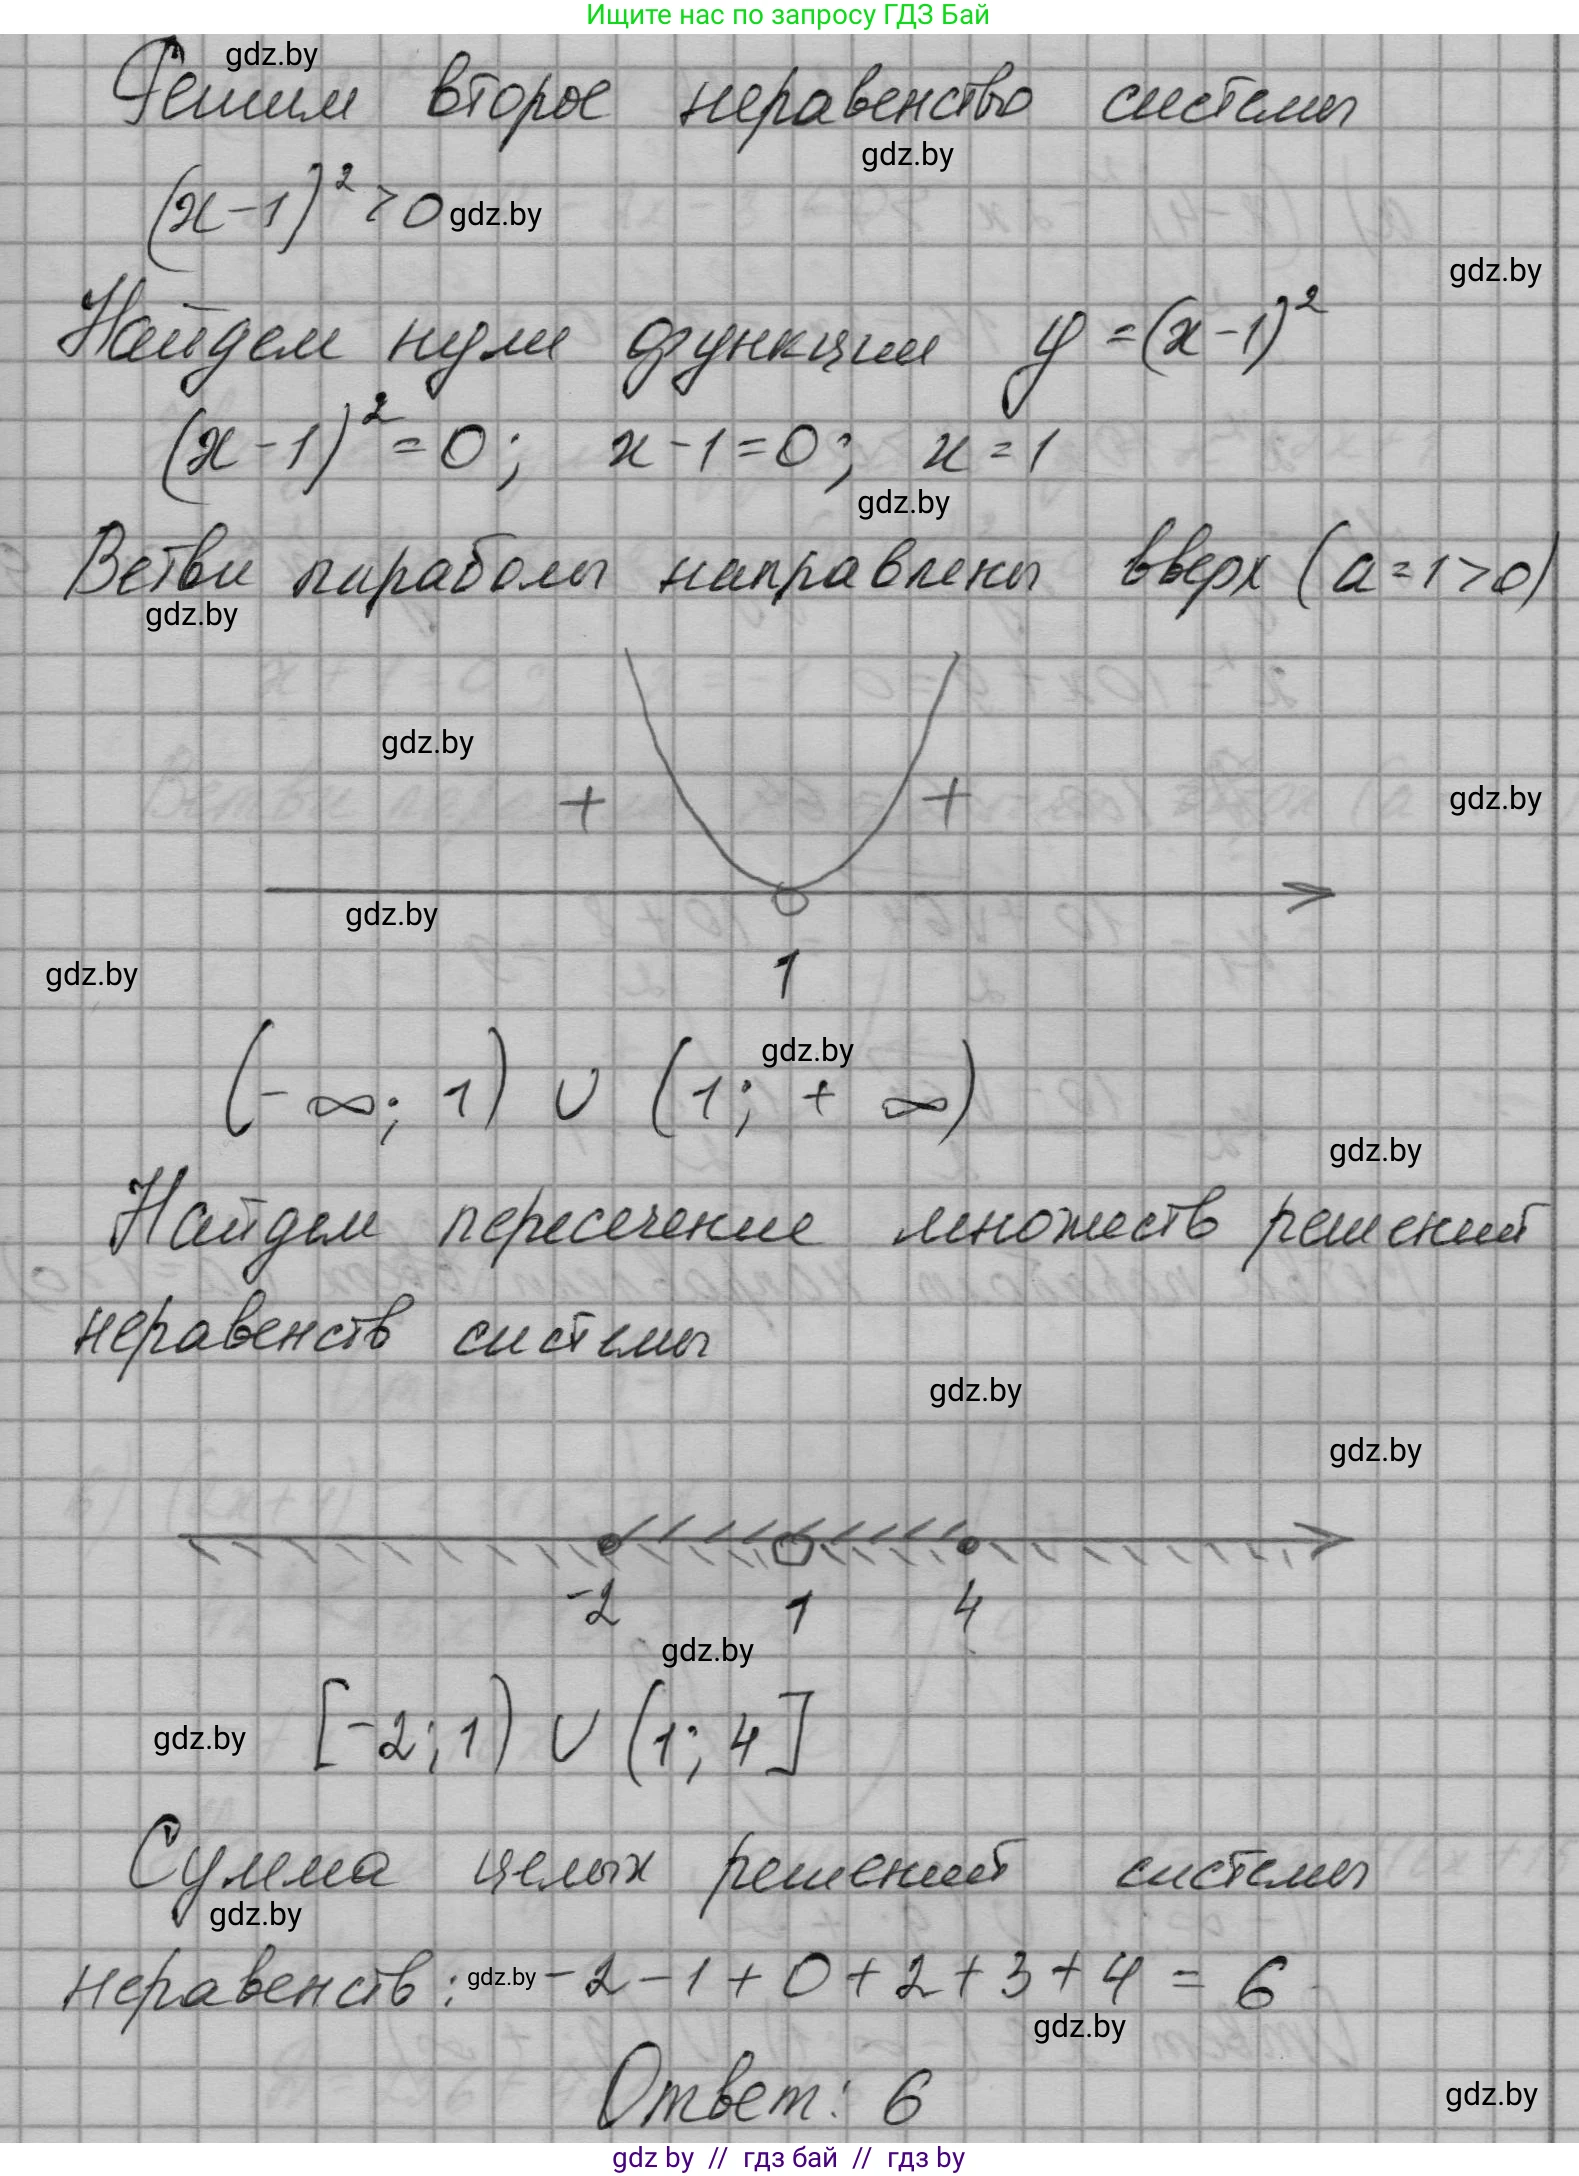 Ищите нас по запросу ГДЗ Бай
gdz.by
Решим второе неравенство системы
gdz.by
(x-1)² > 0 gdz.by
gdz.by
Найдем нули функции y = (x-1)²
(x-1)² = 0; x-1=0; x=1
gdz.by
Ветви параболы направлены вверх (a=1>0)
gdz.by
gdz.by
+ +
gdz.by
gdz.by
gdz.by
1
(-∞; 1) ∪ (1; +∞)
gdz.by
gdz.by
Найдем пересечение множеств решений
неравенств системы
gdz.by
gdz.by
-2 1 4
gdz.by
gdz.by [-2; 1) ∪ (1; 4]
Сумма целых решений системы
gdz.by
неравенств: gdz.by -2-1+0+2+3+4=6
gdz.by
Ответ: 6
gdz.by
gdz by // гдз бай // гдз by